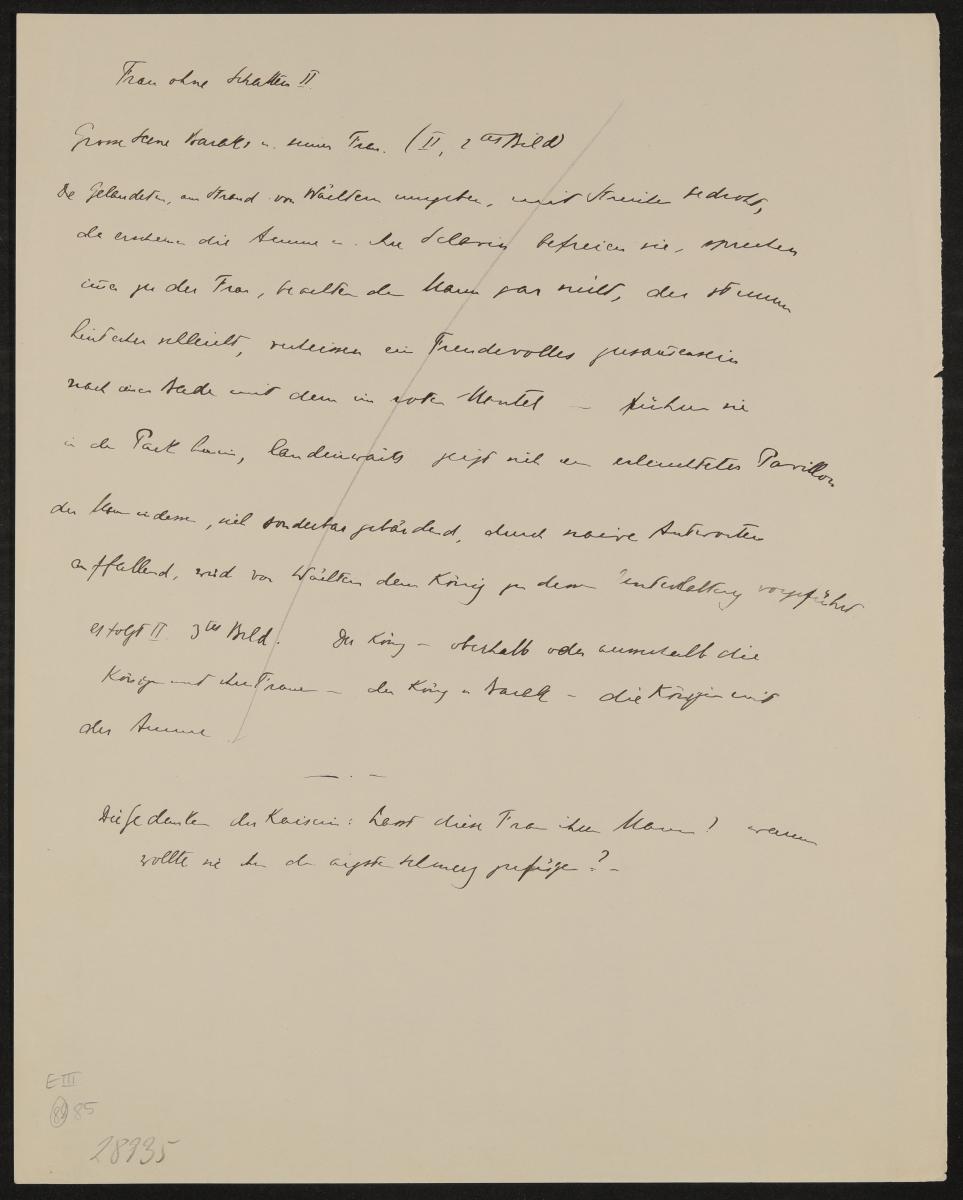 Frau ohne Schatten II
Grosse Scene Baraks u. seiner Frau. (II, 2tes Bild)
Die Gelandeten, am Strand von Wächtern umgeben, mit bedroht,
da erscheinen die Amme u. ihre Sclavin befreien sie, sprechen
immer zu der Frau, beachten den Mann gar nicht, der stumm
hinterher schleicht, verheissen ein Freudevolles zusammensein
nach einem Bade mit dem im roten Mantel – führen sie
in den Park hinein, landeinwärts zeigt sich ein erleuchteter Pavillon
der Mann indessen, sich sonderbar gebärdend, durch naive Antworten
auffallend, wird von Wächtern dem König zu dessen Unterhaltung vorgeführt
es folgt II 3tes Bild. Der König – oberhalb oder ausserhalb die
Königin mit ihren Frauen – der König u Barak – die Königin mit
der Amme
— . –
Die Gedanken der Kaiserin: hasst diese Frau ihren Mann? warum
wollte sie ihm den ärgsten Schmerz zufügen? –
E III
85
28935